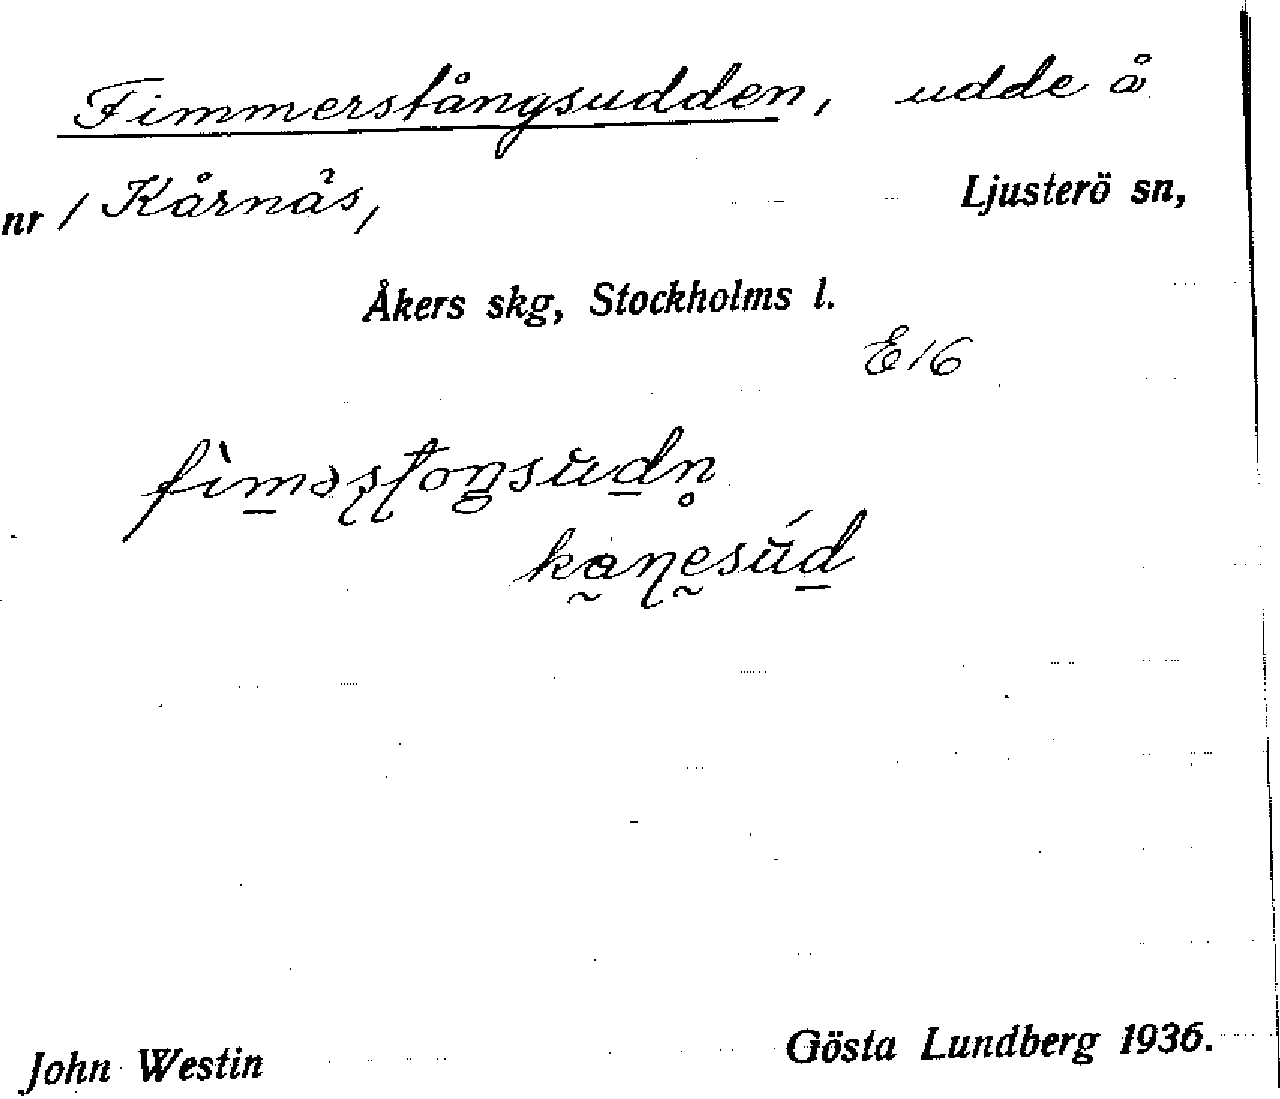 Fimmerstångsudden, udde å
nr 1 Kårnäs, Ljusterö sn,
Åkers skg, Stockholms l.
E16
John Westin Gösta Lundberg 1936.